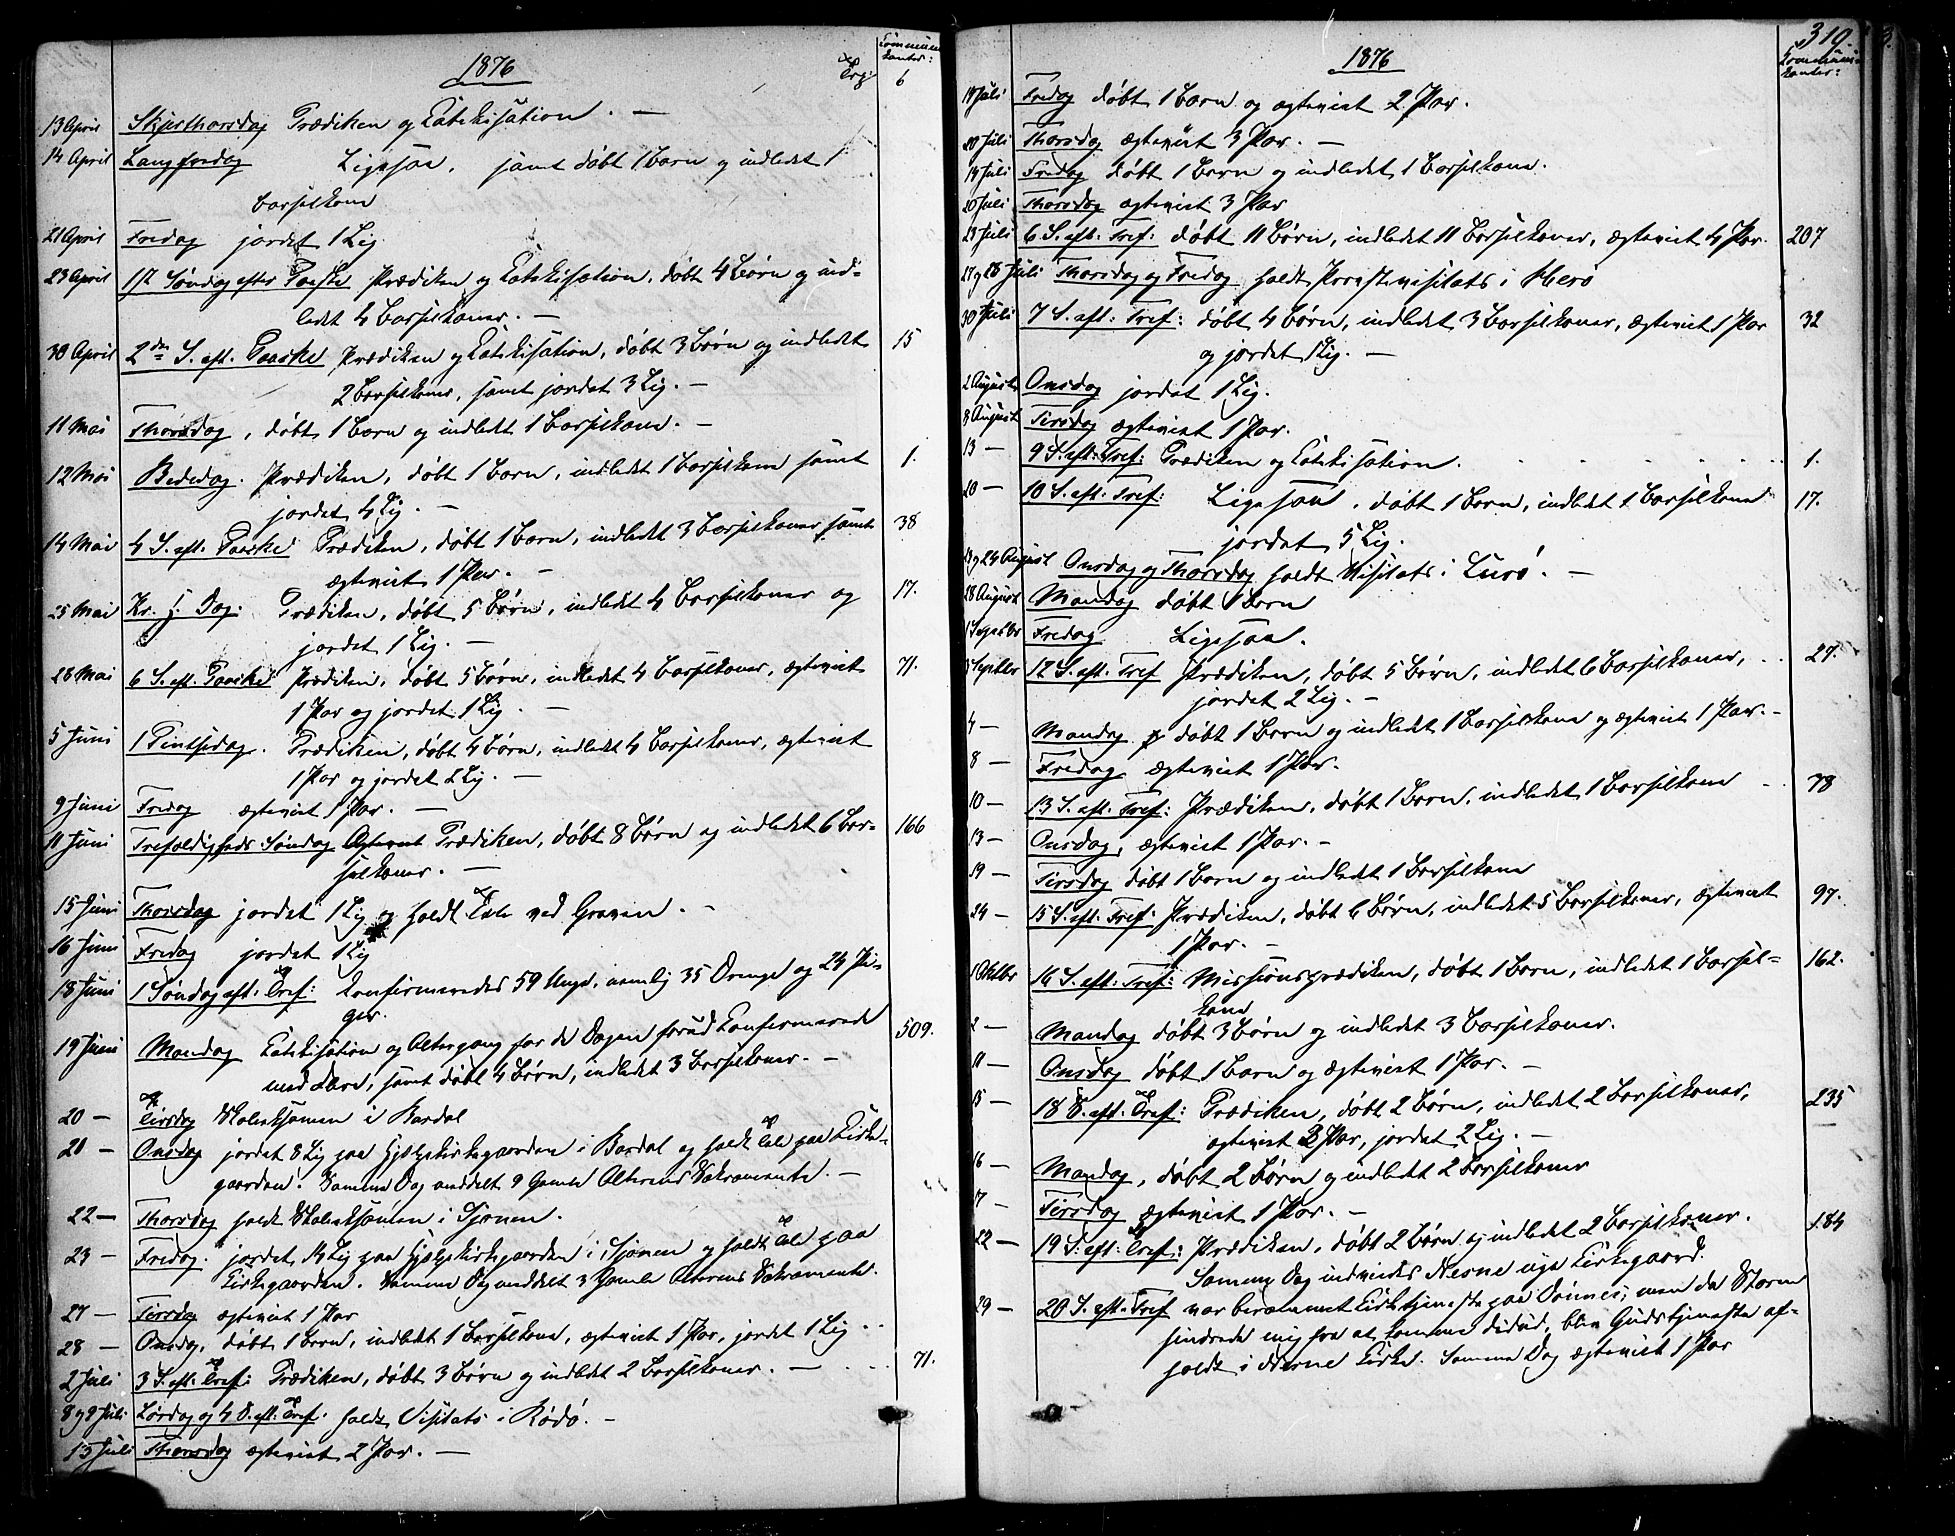 1876
Communi-
kanter:
6
13 April Skjærthorsdag Prædiken og Catekisation. —
14 April Langfredag Ligesaa, samt døbt 1 Barn og indledet 1
Barselkone
21 April Fredag jordet 1 Lig
23 April 1ste Søndag efter Paaske Prædiken og Catekisation, døbt 4 Børn og ind-
ledet 4 Barselkoner. —
30 April 2den S. eft. Paaske Prædiken og Catekisation, døbt 3 Børn og indledet 15
2 Barselkoner, samt jordet 3 Lig. —
11 Mai Thorsdag, døbt 1 Barn og indledet 1 Barselkone. —
12 Mai Bededag. Prædiken, døbt 1 Barn, indledet 1 Barselkone samt 1.
jordet 4 Lig. —
14 Mai 4 S. eft. Paaske Prædiken, døbt 1 Barn, indledet 3 Barselkoner samt 38
ægteviet 1 Par. —
25 Mai Kr. H. Dag: Prædiken, døbt 5 Børn, indledet 4 Barselkoner og 17.
jordet 1 Lig. —
28 Mai 6 S. eft. Paaske Prædiken, døbt 5 Børn, indledet 4 Barselkoner, ægteviet 71.
1 Par og jordet 1 Lig. —
5 Juni 1 Pintsedag. Prædiken, døbt 4 Børn, indledet 4 Barselkoner, ægteviet
1 Par og jordet 2 Lig. —
9 Juni Fredag ægteviet 1 Par. —
11 Juni Trefoldigheds Søndag Prædiken, døbt 8 Børn og indledet 6 Bar- 166
selkoner. —
15 Juni Thorsdag jordet 1 Lig og holdt Tale ved Graven. —
16 Juni Fredag jordet 1 Lig
18 Juni 1 Søndag eft. Tref: Confirmeredes 59 Unge, nemlig 35 Drenge og 24 Pi-
ger.
19 Juni Mandag Catekisation og Altergang for de Dagen forud Confirmerede 509.
med Flere, samt døbt 4 Børn, indledet 3 Barselkoner. —
20 — Tirsdag Skoleeksamen i Bardal
21 — Onsdag jordet 8 Lig paa Hjelpekirkegaarden i Bardal og holdt Tale paa Kirke-
gaarden. Samme Dag meddelt 9 Gamle Alterens Sakramente. —
22 — Thorsdag holdt Skoleeksamen i Sjonen.
23 — Fredag. jordet 14 Lig paa Hjelpekirkegaarden i Sjonen og holdt Tale paa
Kirkegaarden. Samme Dag meddelt 3 Gamle Alterens Sakramente.
27 — Tirsdag ægteviet 1 Par
28 — Onsdag, døbt 1 Barn, indledet 1 Barselkone, ægteviet 1 Par, jordet 1 Lig
2 Juli 3 S. eft. Tref: Prædiken, døbt 3 Børn og indledet 2 Barselkoner. — 71.
8 og 9 Juli Lørdag og 4 S. eft. Tref. holdt Visitats i Rødø. —
13 Juli Thorsdag ægteviet 2 Par. —
319.
1876
Communi-
kanter:
14 Juli Fredag døbt 1 Barn og ægteviet 2 Par.
20 Juli Thorsdag ægteviet 3 Par. —
14 Juli Fredag døbt 1 Barn og indledet 1 Barselkone.
20 Juli Thorsdag ægteviet 3 Par
23 Juli 6 S. eft. Tref: døbt 11 Børn, indledet 11 Barselkoner, ægteviet 4 Par. 207
27 og 28 Juli Thorsdag og Fredag holdt Provstevisitats i Herø
30 Juli 7 S. eft. Tref: døbt 4 Børn, indledet 3 Barselkoner, ægteviet 1 Par 32
og jordet 1 Lig. —
2 August Onsdag jordet 1 Lig.
8 August Tirsdag ægteviet 1 Par.
13 — 9 S. eft. Tref: Prædiken og Catekisation. 1.
20 — 10 S. eft: Tref: Ligesaa, døbt 1 Barn, indledet 1 Barselkone 17.
jordet 5 Lig.
23 og 24 August Onsdag og Thorsdag holdt Visitats i Lurø. —
28 August Mandag døbt 1 Barn
1 Septbr Fredag Ligesaa.
3 Septbr 12 S. eft. Tref Prædiken, døbt 5 Børn, indledet 6 Barselkoner, 27.
jordet 2 Lig. —
4 — Mandag døbt 1 Barn og indledet 1 Barselkone og ægteviet 1 Par. —
8 — Fredag ægteviet 1 Par.
10 — 13 S. eft. Tref: Prædiken, døbt 1 Barn, indledet 1 Barselkone 78
13 — Onsdag, ægteviet 1 Par. —
19 — Tirsdag døbt 1 Barn og indledet 1 Barselkone
24 — 15 S. eft. Tref: Prædiken, døbt 6 Børn, indledet 5 Barselkoner, ægteviet 97.
1 Par. —
1 Oktbr 16 S. eft: Tref: Missionsprædiken, døbt 1 Barn, indledet 1 Barsel- 162.
kone
2 — Mandag døbt 3 Børn og indledet 3 Barselkoner.
11 — Onsdag døbt 1 Barn og ægteviet 1 Par. —
15 — 18 S. eft. Tref: Prædiken, døbt 2 Børn, indledet 2 Barselkoner, 235
ægteviet 2 Par, jordet 2 Lig. —
16 — Mandag, døbt 2 Børn og indledet 2 Barselkoner
17 — Tirsdag ægteviet 1 Par. —
22 — 19 S. eft: Tref: Prædiken, døbt 2 Børn og indledet 2 Barselkoner. 184
Samme Dag indviedes Nesne nye Kirkegaard.
29 — 20 S. eft. Tref var berammet Kirketjeneste paa Dønnes, men da Storm
hindrede mig fra at komme didud, blev Gudstjenesten af-
holdt i Nesne Kirke. Samme Dag ægteviet 1 Par